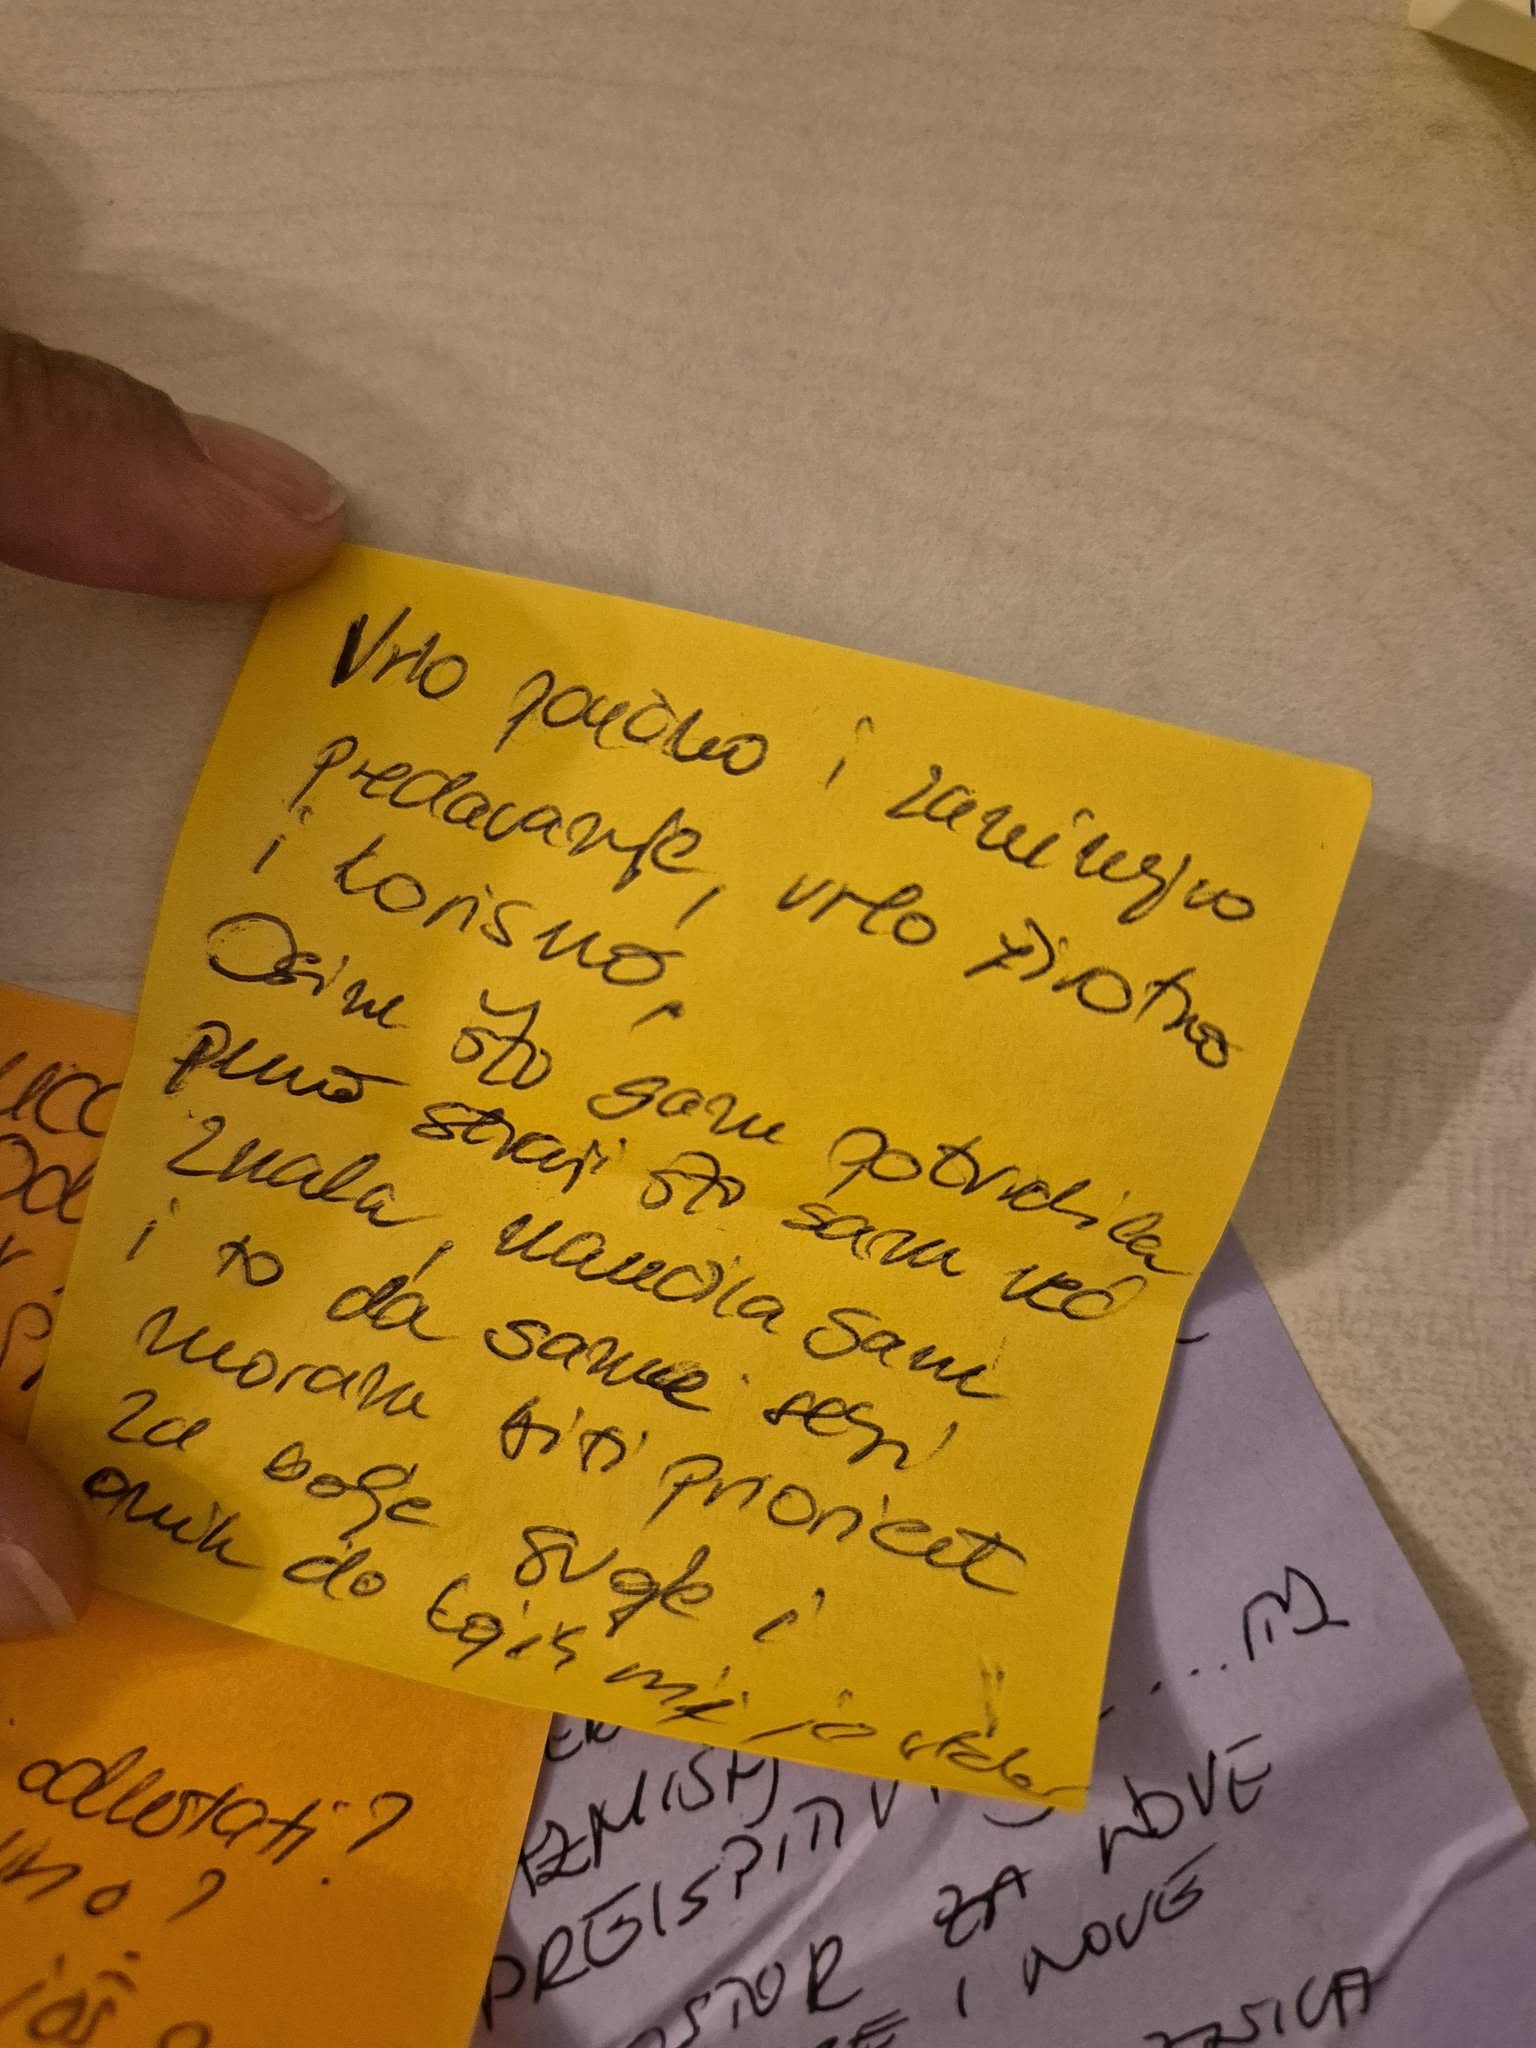 Vrlo poučno i zanimljivo
predavanje, vrlo životno
i korisno.
Osim što sam potvrdila
puno stvari što sam već
znala, naučila sam
i to da sama sebi
moram biti prioritet
za bolje svoje i
onih do kojih mi je stalo
odustati?
još
PREISPITIV
ZA NOVE
I NOVE